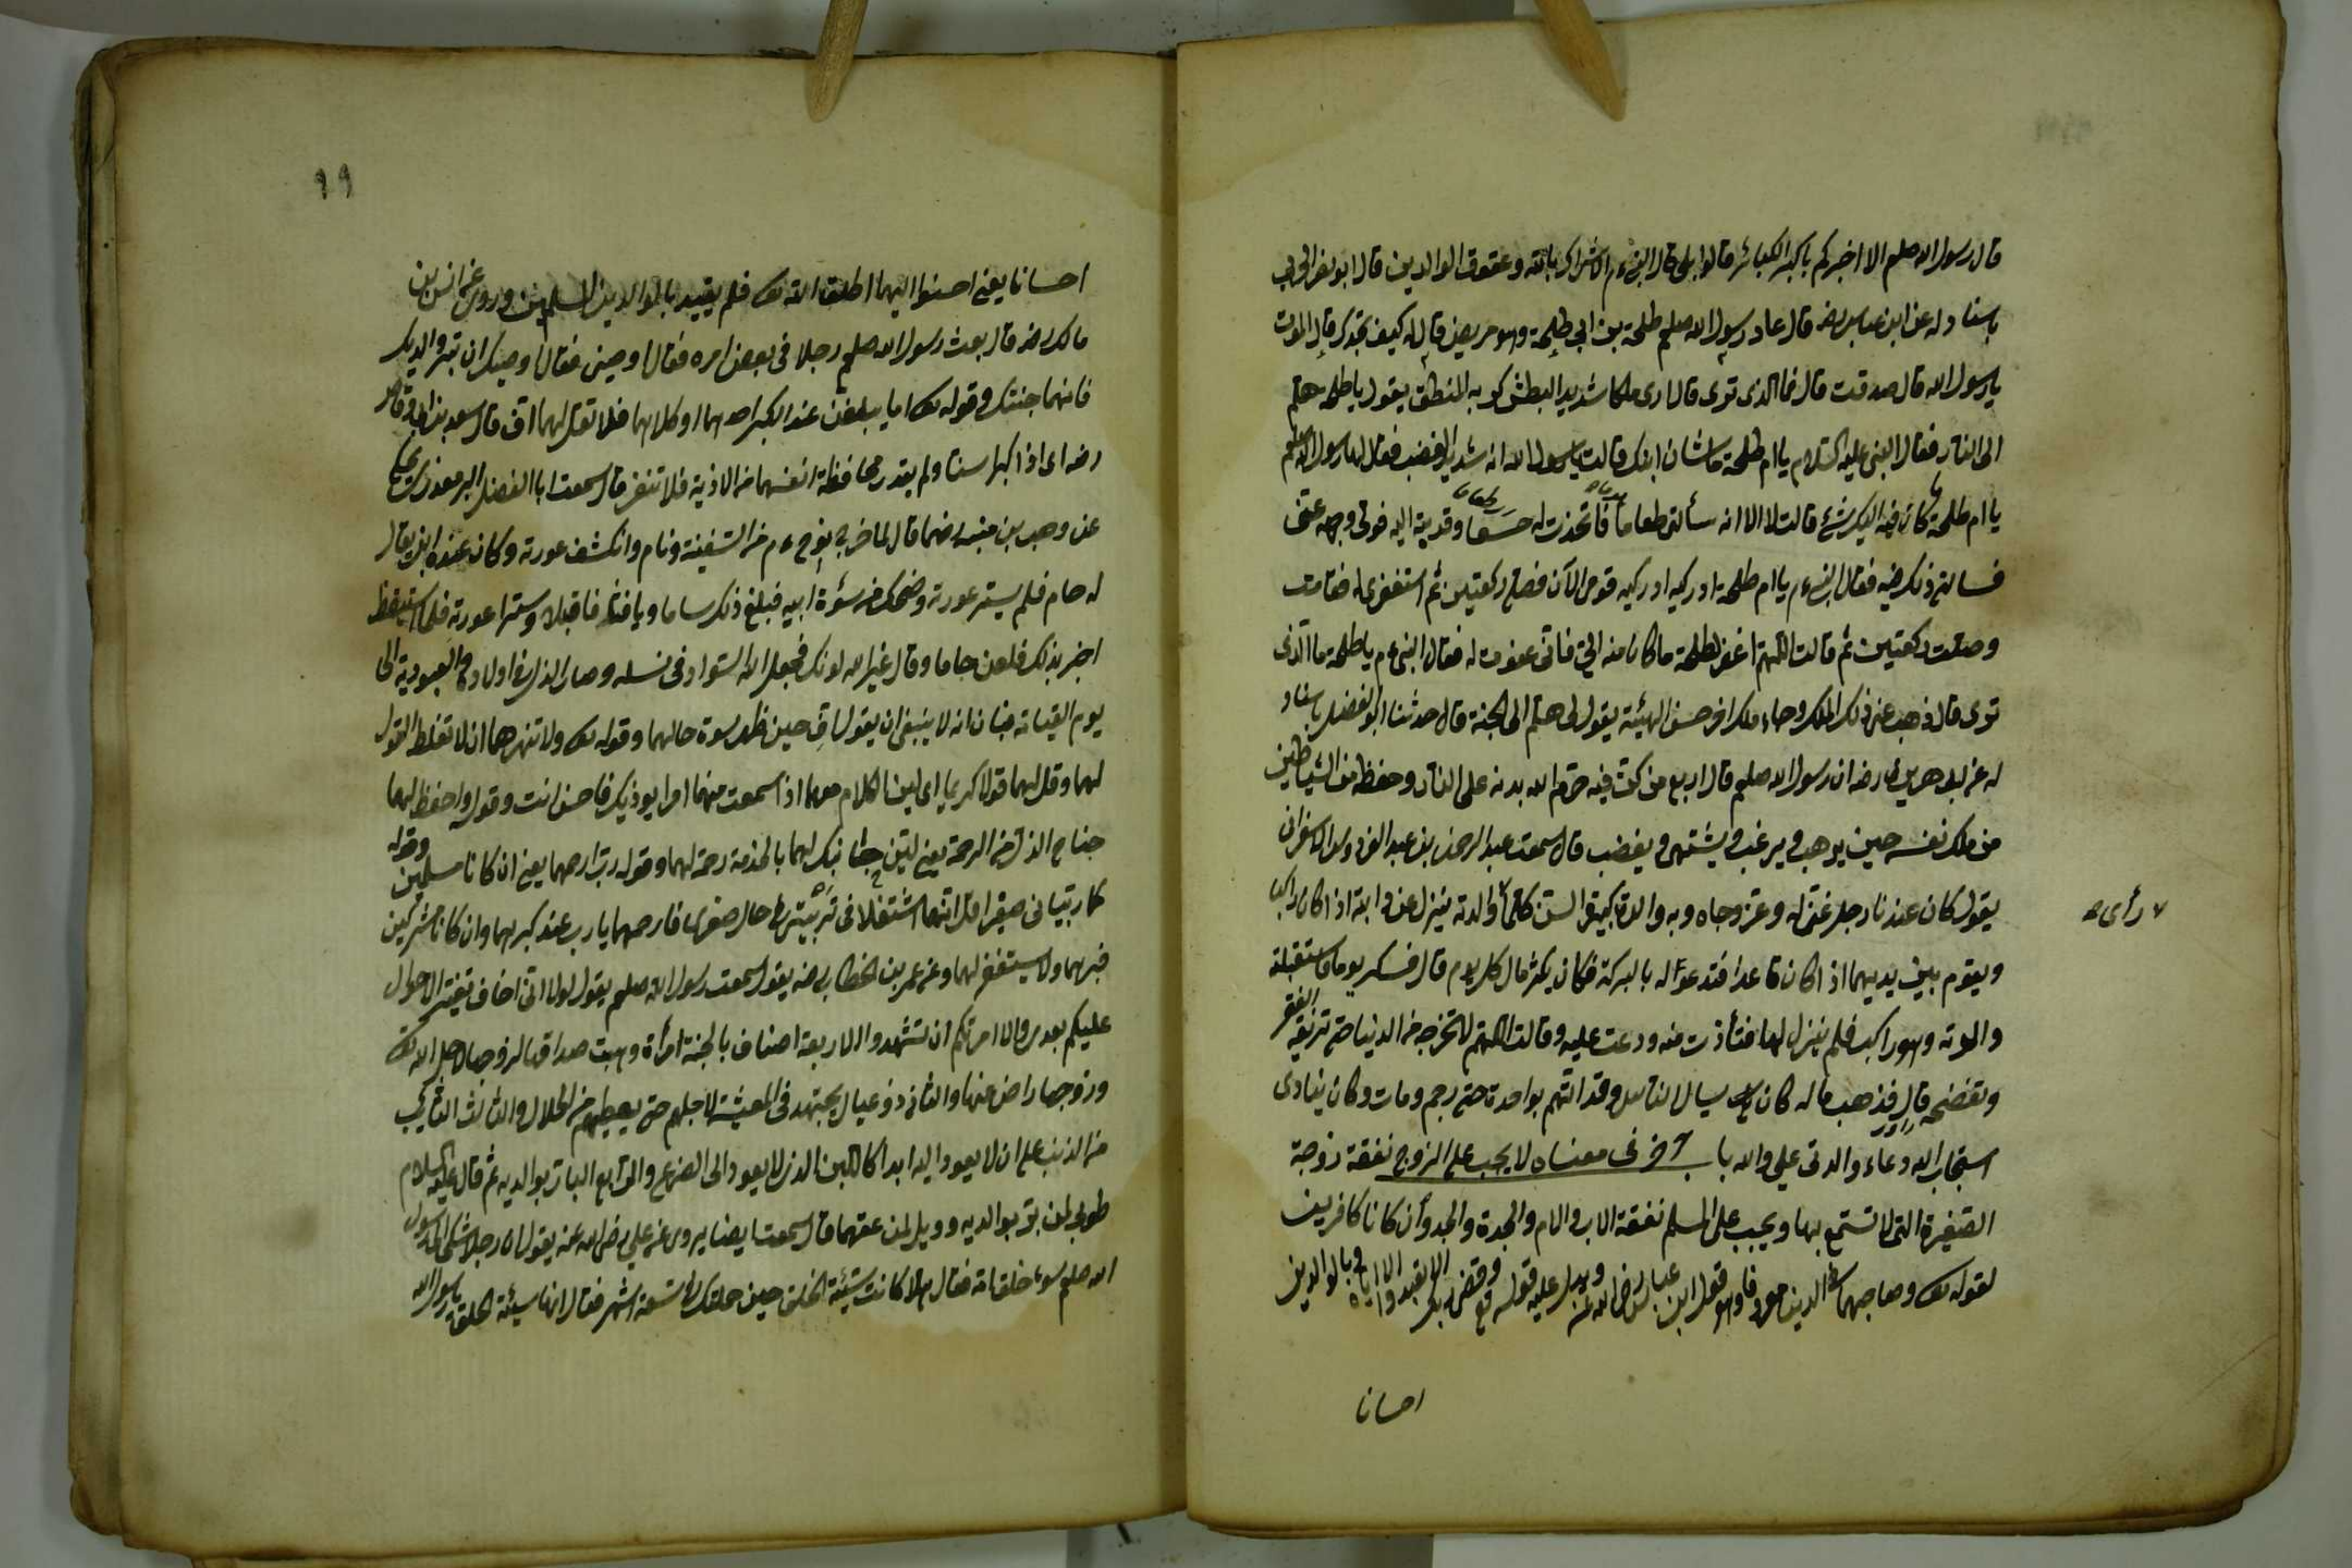 قال رسول الله صلعم الا اخبركم باكبر الكبائر قالوا بلى قال النبي ءم الاشراك بالله وعقوق الوالدين قال ابو نصر
باسناد له عن ابن عباس رضه قال عاد رسول الله صلعم طلحة بن ابي طلحة وهو مريض قال له كيف تجدك قال الموت
يا رسول الله قال صدقت قال فما الذى ترى قال ارى ملكا شديد البطش كريه المنطق يقول يا طلحة هلم
الى النار فقال النبى عليه السلام يا ام طلحة ما شان ابنك قالت يا رسول الله انه شديد الغضب فقال لها رسول الله صلعم
يا ام طلحة كان فيه اليك شئ قالت لا الا انه سألنى طعاما فاتخذت له وقدمته اليه فولى وجهه عنى
فسائنى ذلك منه فقال النبي ءم يا ام طلحة ادركيه ادركيه قومى الآن فصلى ركعتين ثم استغفرى له فقامت
وصلت ركعتين ثم قالت اللهم اغفر لطلحة ما كان منه الى فانى عفوت له فقال النبى ءم يا طلحة ما الذى
ترى قال ذهب عنى ذلك الملك وجاء ملك اخر حسن الهيئة يقول لى هلم الى الجنة قال حدثنا ابو الفضل باسناد
له عن ابى هريرة رضه ان رسول الله صلعم قال اربع من كن فيه حرم الله بدنه على النار وحفظ من الشياطين
من ملك نفسه حين يرهب ويرغب ويشتهى ويغضب قال سمعت عبد الرحمن بن عبد
يقول كان عندنا رجل غنى له وعز وجاه وبه والدة كبيرة السن كلما والدته ينزل عن دابته اذا كان راكبا
ويقوم بين يديهما اذا كان قاعدا فتدعو له بالبركة فكان يكثر مال كل يوم قال فسكر يوما فاستقبلته
والدته وهو راكب فلم ينزل لها فتأذت منه ودعت عليه وقالت اللهم لا تخرجه من الدنيا حتى تريه الفقر
وتفضحه قال فذهب ماله كان يسال الناس وقد اتهم بواحدة حتى رجم ومات وكان ينادى
استجاب الله دعاء والدتى على والله باب آخر فى معناه لا يجب على الزوج نفقة زوجة
الصغيرة التى لا تستمتع بها ويجب على المسلم نفقة الاب والام والجدة والجد وان كانا كافرين
لقوله تعالى وصاحبهما فى الدنيا معروفا وهو قول ابن عباس رضى الله عنه ويدل عليه قوله تع وقضى ربك الا تعبدوا الا اياه وبالوالدين
احسانا
رأى صح
99
احسانا يعنى احسنوا اليهما اطلق الله تعالى فلم يقيد بالوالدين المسلمين وروى عن انس بن
مالك رضه قال بعث رسول الله صلعم رجلا فى بعض امره فقال اوصينى فقال اوصيك ان تبر والديك
فانهما جنتك وقوله تعالى اما يبلغن عندك الكبر احدهما او كلاهما فلا تقل لهما اف قال سعد بن ابى وقاص
رضه اى اذا كبرا سنا ولم يقدر محافظة انفسهما من الاذية فلا تنفر قال سمعت ابا الفضل
عن وهب بن منبه رضهما قال لما خرج نوح ءم من السفينة ونام وانكشف عورته وكان عنده ابن يقال
له حام فلم يستر عورته وضحك من سؤة ابيه فبلغ ذلك ساما ويافث فاقبلا وسترا عورته فلما استيقظ
اخبر بذلك فلعن حاما وقال غير الله لونك فجعل الله السواد فى نسله وصار الذل فى اولاده والعبودية الى
يوم القيامة فبان انه لا ينبغى ان يقول اف حين ظهر سوة حالهما وقوله تعالى ولا تنهرهما اى لا تغلظ القول
لهما وقل لهما قولا كريما اى لين الكلام معهما اذا سمعت منهما امرا يوذيك فاحسن انت وقوله واخفض لهما
جناح الذل من الرحمة يعنى لين جانبك لهما بالخدمة رحمة لهما وقوله رب ارحمهما يعنى ان كانا مسلمين وقوله
كما ربيانى صغيرا اى انهما اشتغلا فى تربيتى فى حال صغرى فارحمهما يا رب عند كبرهما وان كانا مشركين
فبرهما ولا يستغفر لهما وعن عمر بن الخطاب رضه يقول سمعت رسول الله صلعم يقول لولا انى اخاف تغيير الاحوال
عليكم بعدى والا امرتكم ان تشهدوا لاربعة اصناف بالجنة امرأة وهبت صداقها لزوجها لاجل الله تعالى
وزوجها راض عنها والثانى ذو عيال يجتهد فى المعيشة لاجلهم حتى يعطيهم من الحلال والثالث التائب
من الذنب على ان لا يعود اليه ابدا كاللبن الذى لا يعود الى الضرع والرابع البار بوالديه ثم قال عليه السلام
طوبى لمن بر بوالديه وويل لمن عقهما قال سمعت ايضا يروى عن على رضى الله عنه يقول ان رجلا شكى الى رسول
الله صلعم سوء خلق امه فقال هلا كانت سيئة الخلق حين حملتك تسعة اشهر فقال انها سيئة الخلق يا رسول الله